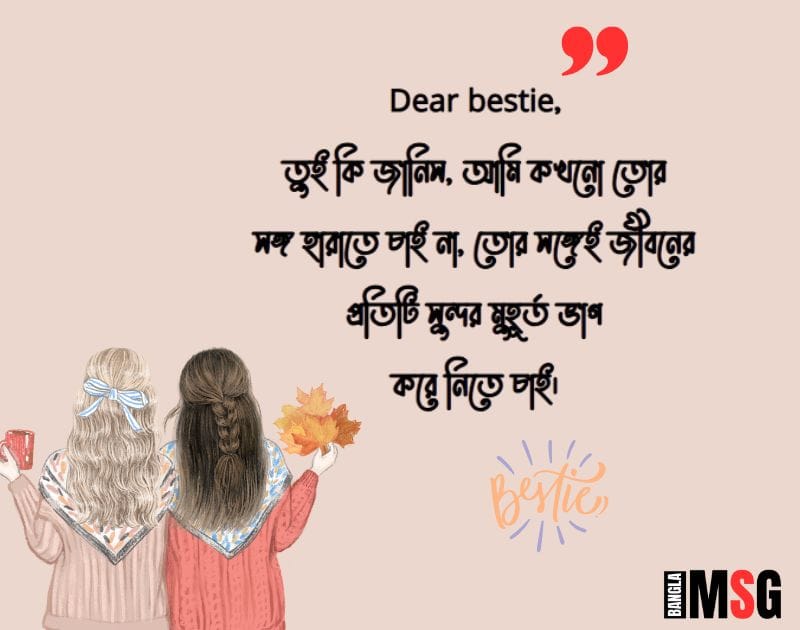 Dear bestie,
তুই কি জানিস, আমি কখনো তোর
সঙ্গ হারাতে চাই না, তোর সঙ্গেই জীবনের
প্রতিটি সুন্দর মুহূর্ত ভাগ
করে নিতে চাই।
Bestie,
BANGLA MSG